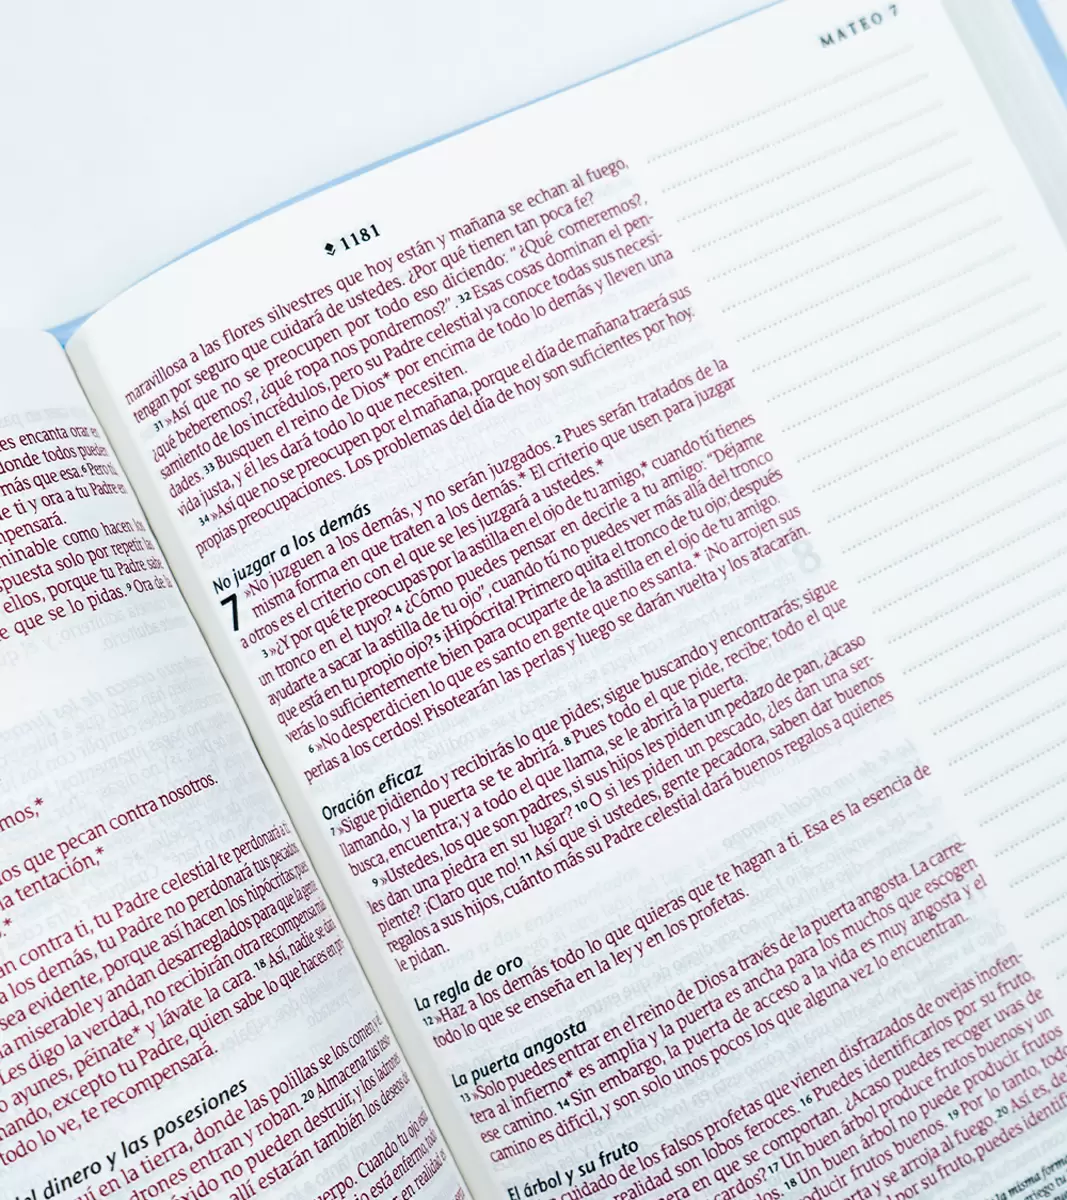 es encanta orar en
donde todos pueden
más que esa. 6 Pero tú,
e ti y ora a tu Padre en
pensará.
minable como hacen los
spuesta solo por repetir las
ellos, porque tu Padre sabe
e que se lo pidas. 9 Ora de la
mos,*
os que pecan contra nosotros.
la tentación,*
an contra ti, tu Padre celestial te perdonará a ti
a los demás, tu Padre no perdonará tus pecados.
sea evidente, porque así hacen los hipócritas; pues
a miserable y andan desarreglados para que la gente
Les digo la verdad, no recibirán otra recompensa más
o ayunes, péinate* y lávate la cara. 18 Así, nadie se dará
nando, excepto tu Padre, quien sabe lo que haces en pri
todo lo ve, te recompensará.
dinero y las posesiones
uí en la tierra, donde las polillas se los comen y el
drones entran y roban. 20 Almacena tus
óxido no pueden destruir, y los ladrones
allí estarán también los deseos de
erpo. Cuando tu ojo es
está enfermo, todo
en realidad es
1181
MATEO 7
maravillosa a las flores silvestres que hoy están y mañana se echan al fuego,
tengan por seguro que cuidará de ustedes. ¿Por qué tienen tan poca fe?
31 »Así que no se preocupen por todo eso diciendo: “¿Qué comeremos?,
¿qué beberemos?, ¿qué ropa nos pondremos?”. 32 Esas cosas dominan el pen-
samiento de los incrédulos, pero su Padre celestial ya conoce todas sus necesi-
dades. 33 Busquen el reino de Dios* por encima de todo lo demás y lleven una
vida justa, y él les dará todo lo que necesiten.
34 »Así que no se preocupen por el mañana, porque el día de mañana traerá sus
propias preocupaciones. Los problemas del día de hoy son suficientes por hoy.
No juzgar a los demás
7 »No juzguen a los demás, y no serán juzgados. 2 Pues serán tratados de la
misma forma en que traten a los demás.* El criterio que usen para juzgar
a otros es el criterio con el que se les juzgará a ustedes.*
3 »¿Y por qué te preocupas por la astilla en el ojo de tu amigo,* cuando tú tienes
un tronco en el tuyo? 4 ¿Cómo puedes pensar en decirle a tu amigo: “Déjame
ayudarte a sacar la astilla de tu ojo”, cuando tú no puedes ver más allá del tronco
que está en tu propio ojo? 5 ¡Hipócrita! Primero quita el tronco de tu ojo; después
verás lo suficientemente bien para ocuparte de la astilla en el ojo de tu amigo.
6 »No desperdicien lo que es santo en gente que no es santa.* ¡No arrojen sus
perlas a los cerdos! Pisotearán las perlas y luego se darán vuelta y los atacarán.
Oración eficaz
7 »Sigue pidiendo y recibirás lo que pides; sigue buscando y encontrarás; sigue
llamando, y la puerta se te abrirá. 8 Pues todo el que pide, recibe; todo el que
busca, encuentra; y a todo el que llama, se le abrirá la puerta.
9 »Ustedes, los que son padres, si sus hijos les piden un pedazo de pan, ¿acaso
les dan una piedra en su lugar? 10 O si les piden un pescado, ¿les dan una ser-
piente? ¡Claro que no! 11 Así que si ustedes, gente pecadora, saben dar buenos
regalos a sus hijos, cuánto más su Padre celestial dará buenos regalos a quienes
le pidan.
La regla de oro
12 »Haz a los demás todo lo que quieras que te hagan a ti. Esa es la esencia de
todo lo que se enseña en la ley y en los profetas.
La puerta angosta
13 »Solo puedes entrar en el reino de Dios a través de la puerta angosta. La carre-
tera al infierno* es amplia y la puerta es ancha para los muchos que escogen
ese camino. 14 Sin embargo, la puerta de acceso a la vida es muy angosta y el
camino es difícil, y son solo unos pocos los que alguna vez lo encuentran.
El árbol y su fruto
cuidado de los falsos profetas que vienen disfrazados de ovejas inofen-
realidad son lobos feroces. 16 Puedes identificarlos por su fruto,
era en que se comportan. ¿Acaso puedes recoger uvas de
cardos? 17 Un buen árbol produce frutos buenos y un
18 Un buen árbol no puede producir frutos
ducir frutos buenos. 19 Por lo tanto, todo
rta y se arroja al fuego. 20 Así es, de
r su fruto, puedes identifi
misma forma